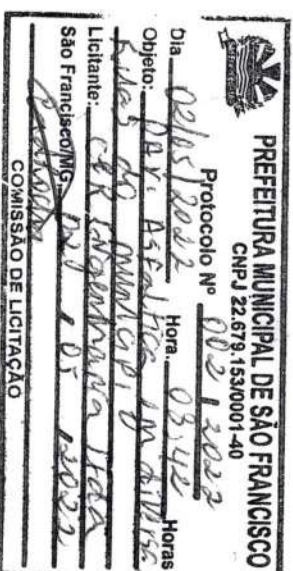 PREFEITURA MUNICIPAL DE SÃO FRANCISCO
CNPJ 22.679.153/0001-40
Protocolo Nº 002 / 2022
Dia 02/05/2022 Hora. 08:42 Horas
Objeto: PAV. Asfaltica in diversa
Ruas do municipio
Licitante: C&R Engenharia Ltda
São Francisco/MG, 02 / 05 / 2022
COMISSÃO DE LICITAÇÃO